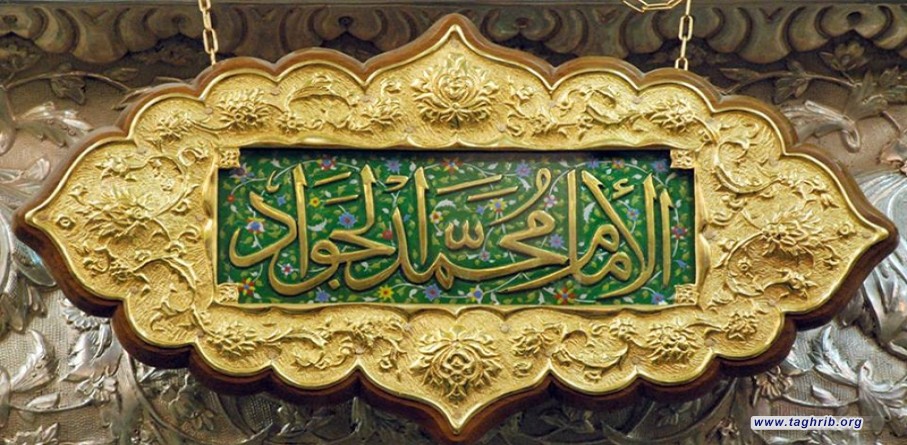 الإمام محمد الجواد
www.taghrib.org